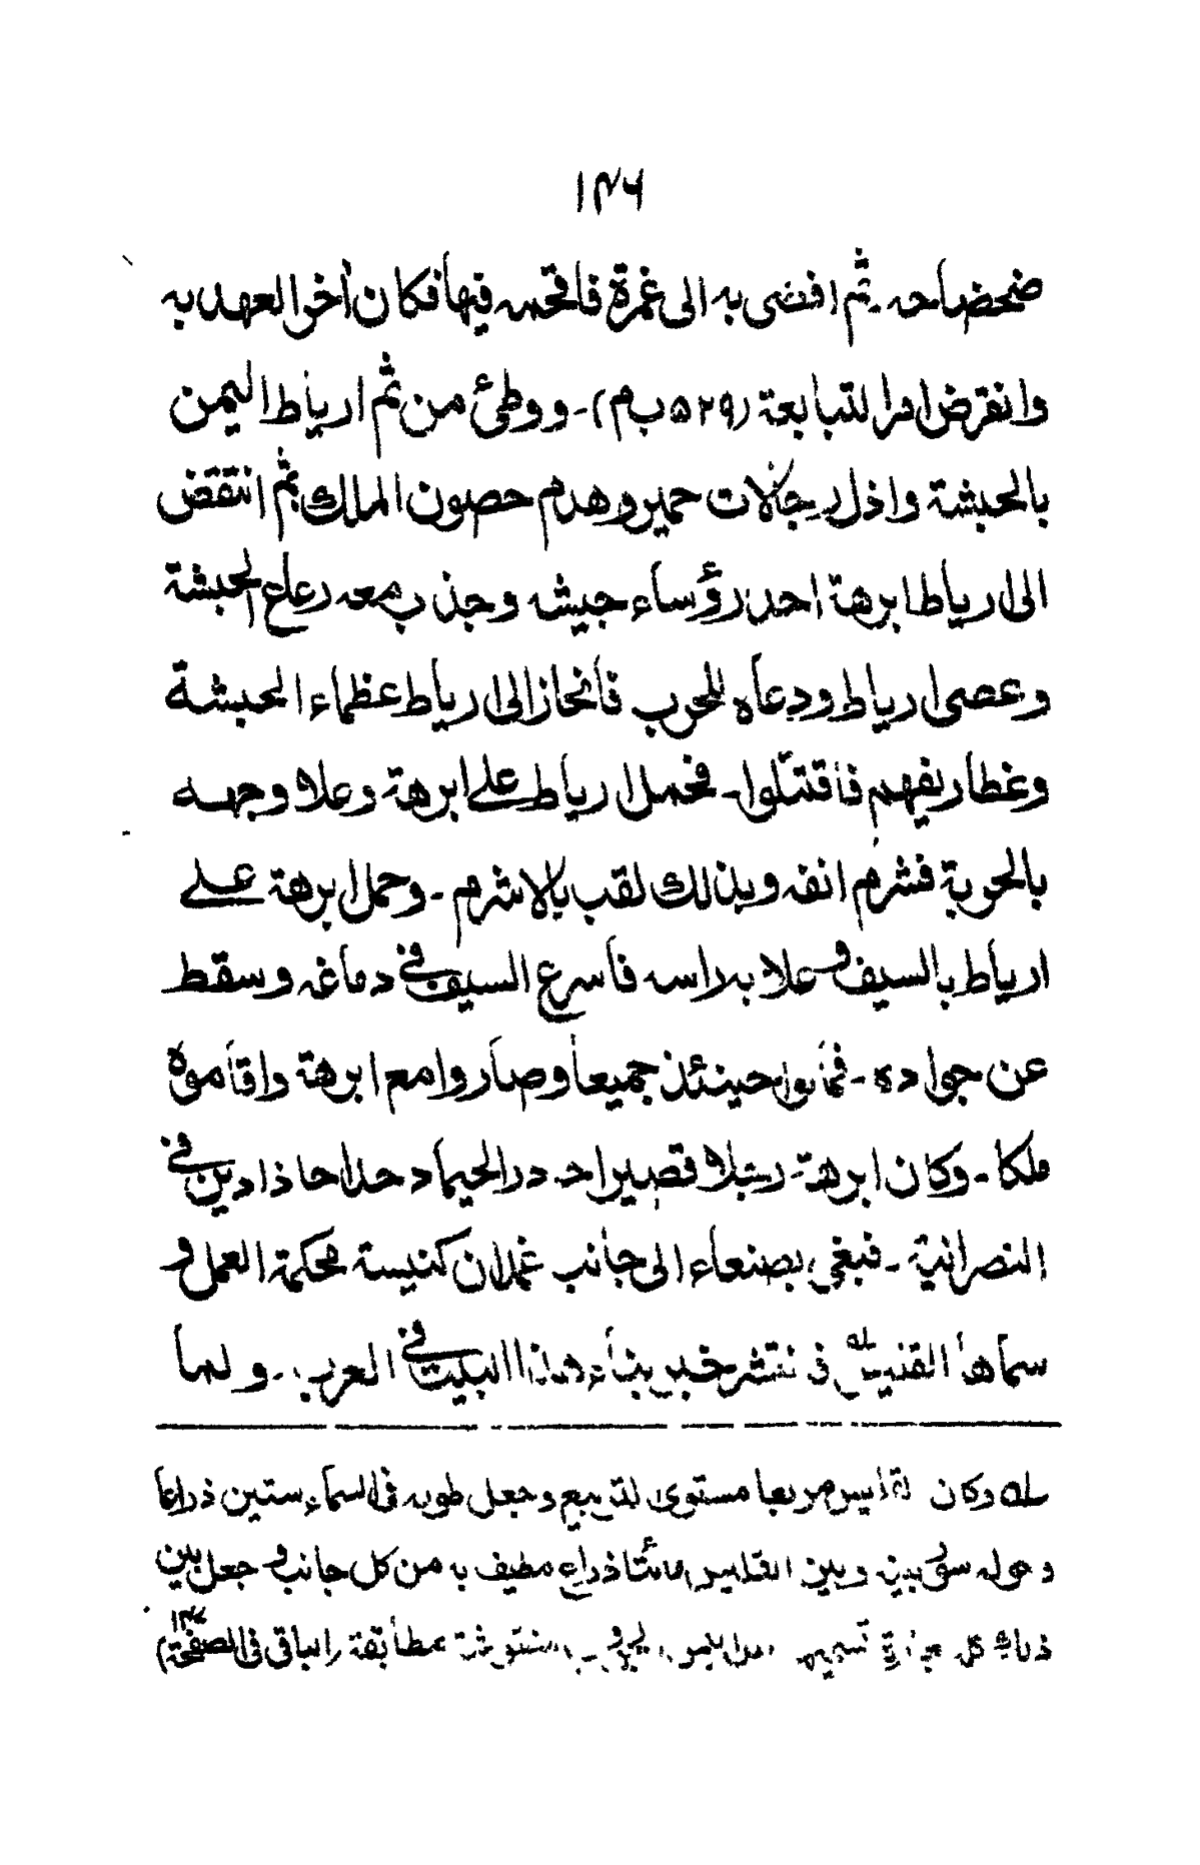 ۱۴۶
ضحضاحه ۔ ثم افضى به الى غمرة فاقحمه فيها فكان أخر العهد به
وانقرض امر التبابعة (۵۲۹ ب م) ۔ ووطئ من ثم ارياط اليمن
بالحبشة واذل رجالات حمير وهدم حصون الملك ثم انتقض
الى ارياط ابرهة احد رؤساء جيشه وجذب معه رعاع الحبشة
وعصى ارياط ودعاه للحرب فانحاز الى ارياط عظماء الحبشة
وغطاريفهم فاقتتلوا ۔ فحمل ارياط على ابرهة وعلا وجهه
بالحربة فشرم انفه وبذلك لقب بالاشرم ۔ وحمل ابرهة على
ارياط بالسيف وعلا به راسه فاسرع السيف في دماغه وسقط
عن جواده ۔ فمالوا حينئذ جميعا وصاروا مع ابرهة واقاموه
ملكا ۔ وكان ابرهة رجلا قصيرا حادر الحيماد حداحا ذا دين في
النصرانية ۔ فبغى بصنعاء الى جانب غمدان كنيسة محكمة العمل و
سماها القليس له فانتشر خبر بناء هذا البيت في العرب ۔ ولما
له وكان القليس مربعا مستوى التربيع وجعل طوله في السماء ستين ذراعا
وحوله سور بينه وبين القليس مائتا ذراع مطيف به من كل جانب وجعل بين
ذلك كله حجارة تسميها اهل اليمن الجروب منقوشة مطابقة (الباقى فى الصفحة ۱۴۷)